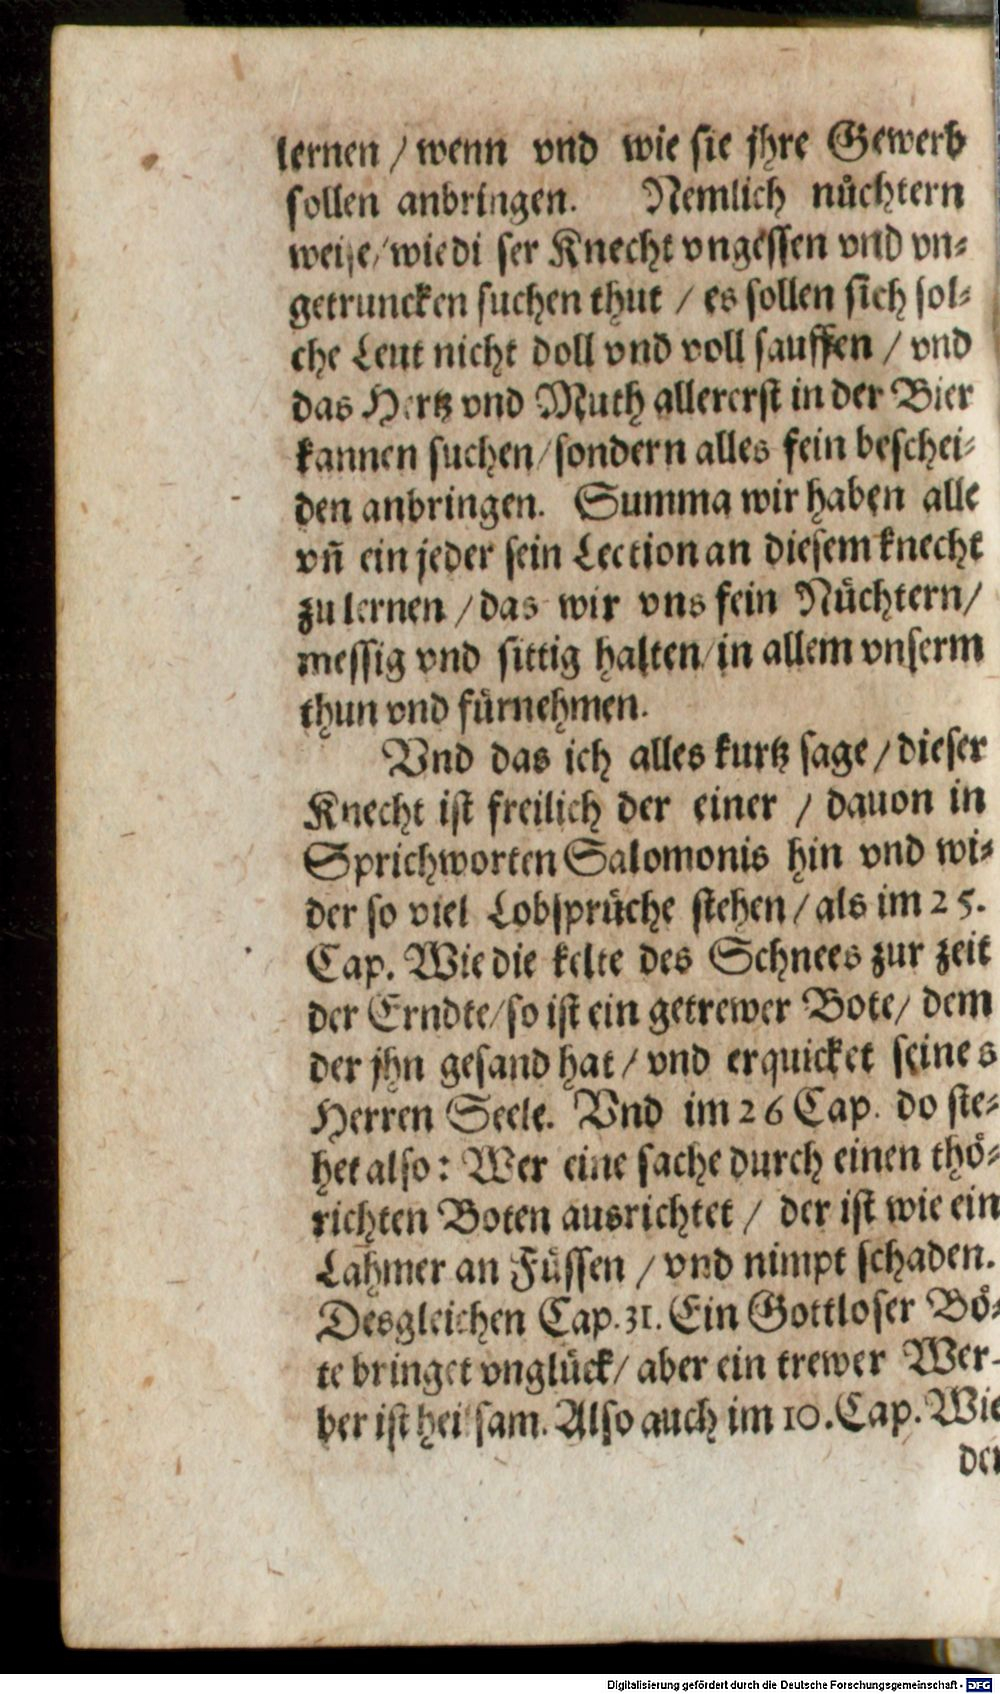 lernen / wenn vnd wie sie jhre Gewerb
sollen anbringen. Nemlich nůchtern
weise/ wie di ser Knecht vngessen vnd vn⸗
getruncken suchen thut / es sollen sich sol⸗
che Leut nicht doll vnd voll sauffen / vnd
das Hertz vnd Muth allererst in der Bier
kannen suchen/ sondern alles fein beschei⸗
den anbringen. Summa wir haben alle
vñ ein jeder sein Lection an diesem knecht
zu lernen / das wir vns fein Nůchtern/
messig vnd sittig halten/ in allem vnserm
thun vnd fůrnehmen.
Vnd das ich alles kurtz sage / dieser
Knecht ist freilich der einer / dauon in
Sprichworten Salomonis hin vnd wi⸗
der so viel Lobsprůche stehen / als im 25.
Cap. Wie die kelte des Schnees zur zeit
der Erndte/ so ist ein getrewer Bote/ dem
der jhn gesand hat / vnd erquicket seines
Herren Seele. Vnd im 26 Cap. do ste⸗
het also: Wer eine sache durch einen thoͤ⸗
richten Boten ausrichtet / der ist wie ein
Lahmer an Fůssen / vnd nimpt schaden.
Desgleichen Cap. 31. Ein Gottloser Boͤ⸗
te bringet vnglůck/ aber ein trewer Wer⸗
ber ist heilsam. Also auch im 10. Cap. Wie
der
Digitalisierung gefördert durch die Deutsche Forschungsgemeinschaft - DFG